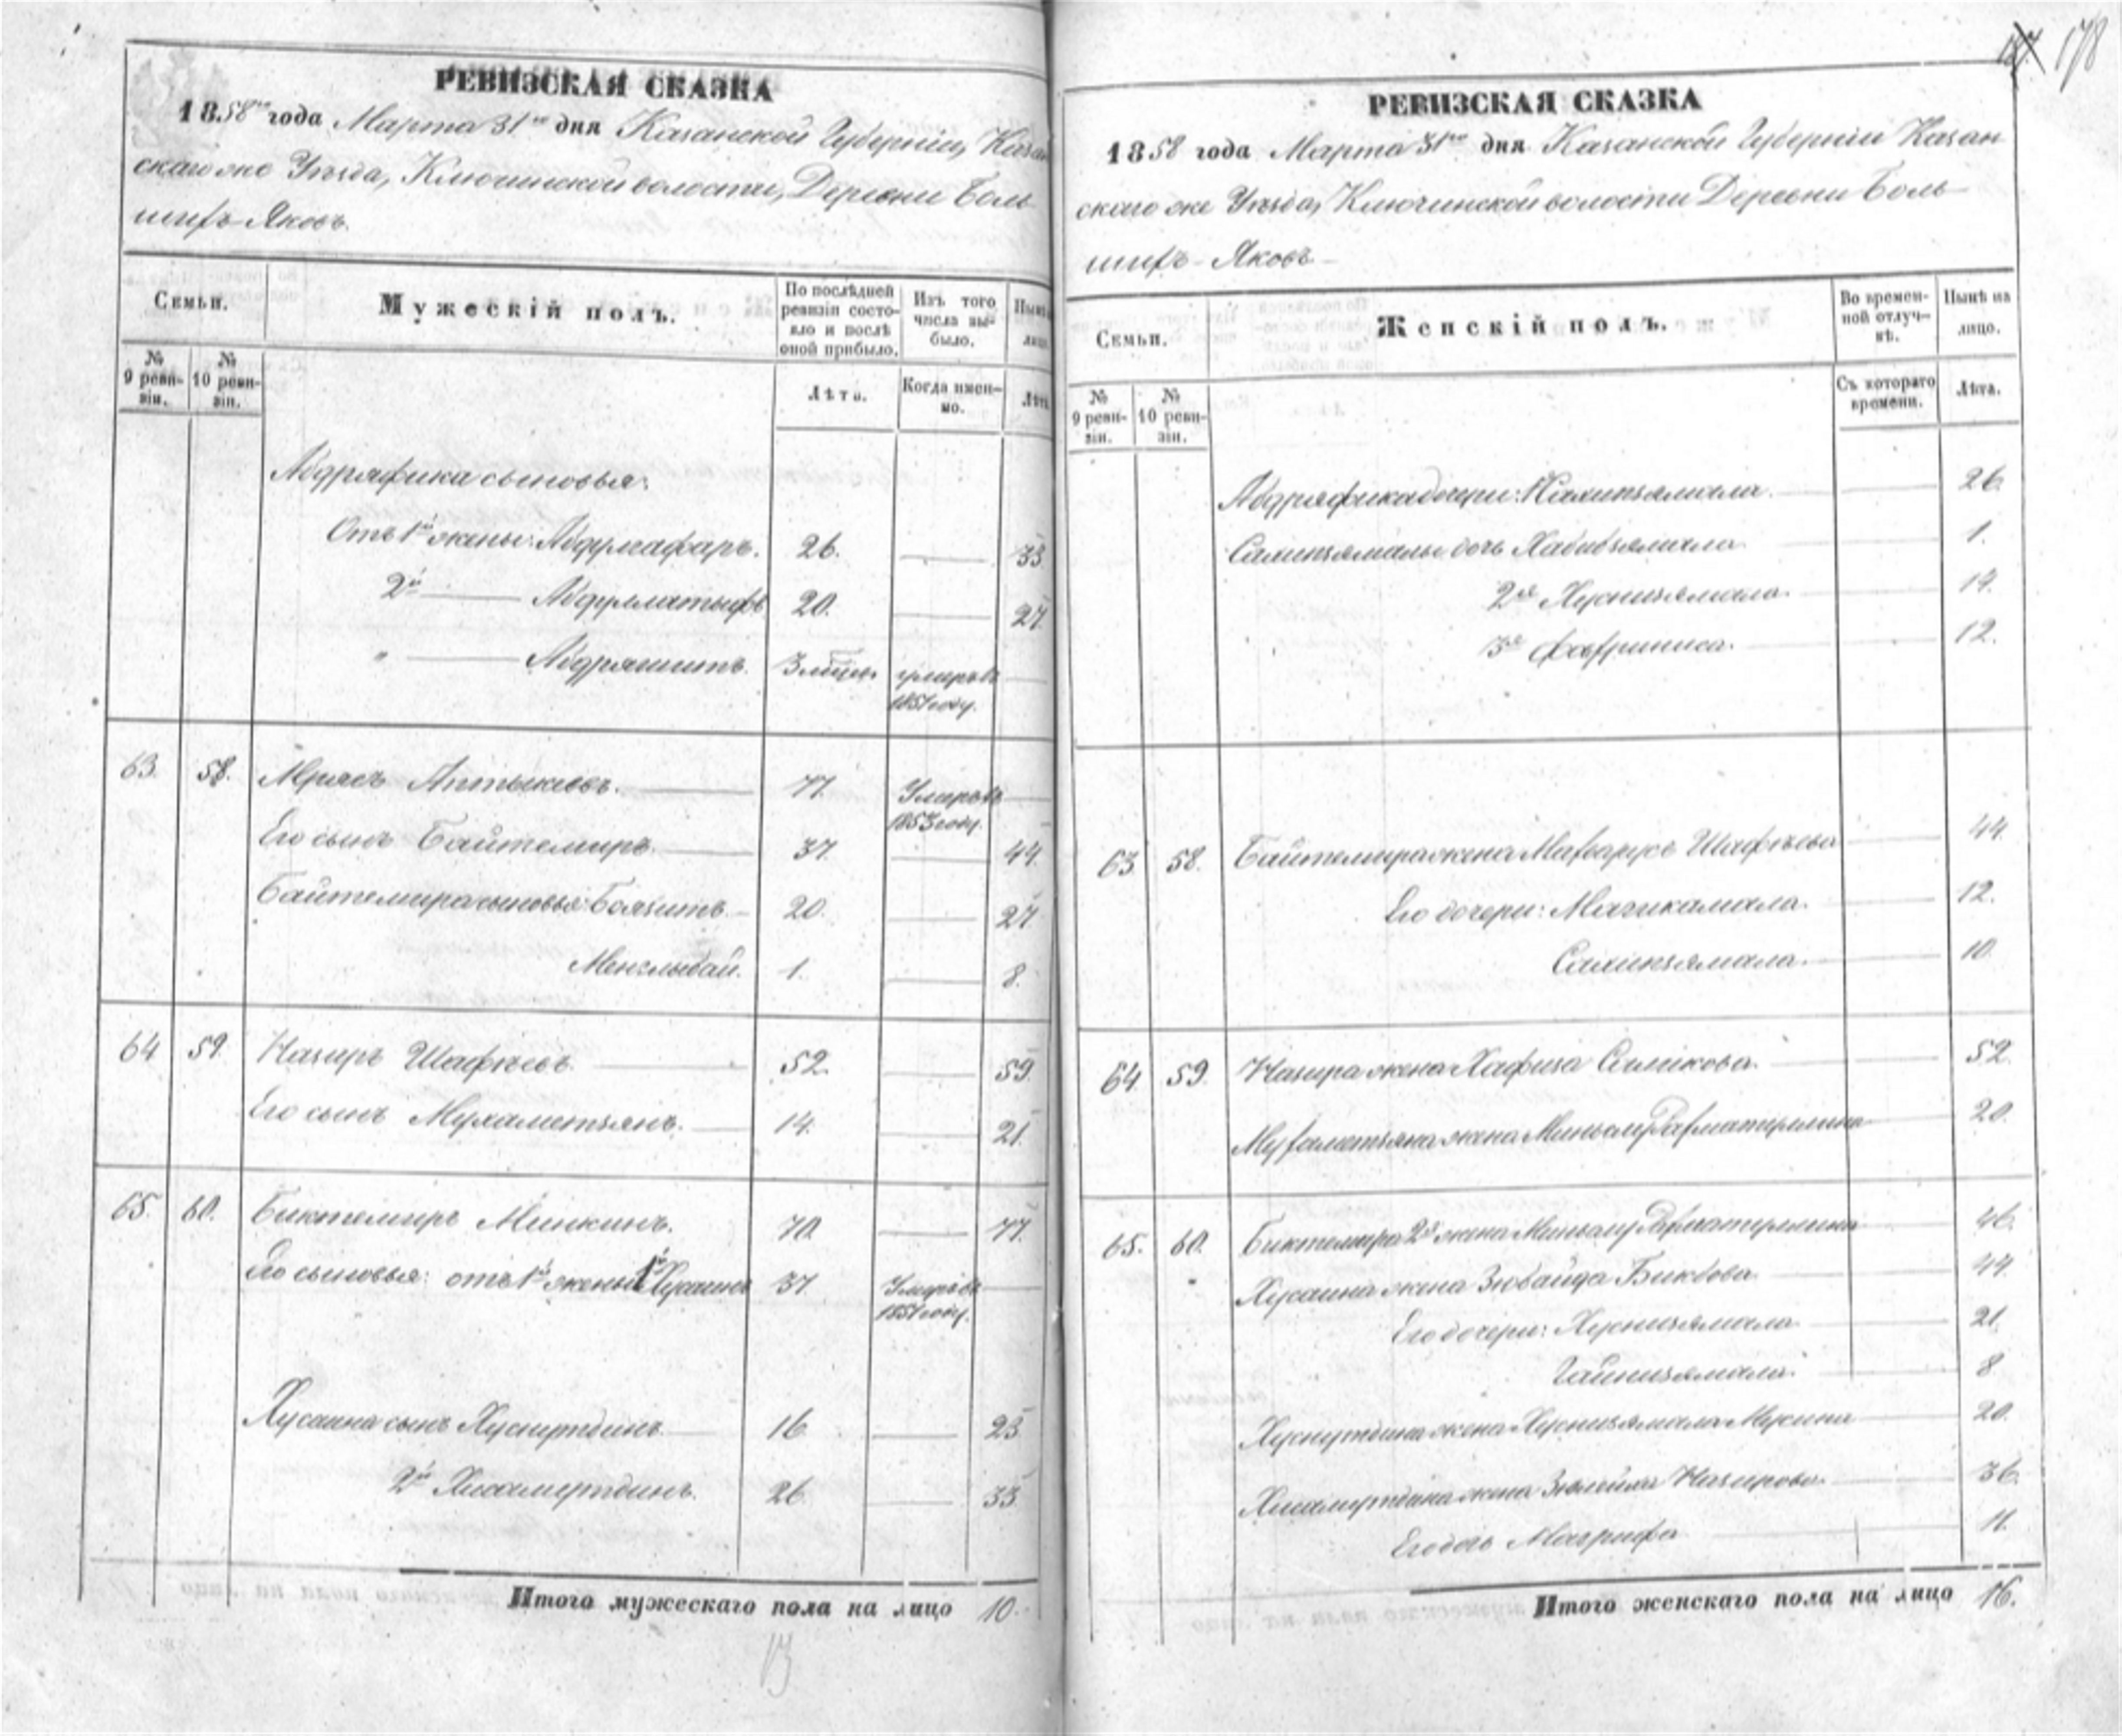 178
РЕВИЗСКАЯ СКАЗКА
1858го года Марта 31го дня Казанской Губерніи, Казан
скаго же Уѣзда, Ключинской волости, Деревни Боль
шихъ Яковъ.
Семьи.
Мужескій полъ.
По послѣдней ревизіи состояло и послѣ оной прибыло.
Изъ того числа выбыло.
Нынѣ на лицо.
№ 9 ревизіи.
№ 10 ревизіи.
Лѣта.
Когда именно.
Лѣта
Абдряфика сыновья:
Отъ 1й жены: Абдулгафаръ. 26. 33
2й Абдуллатыфъ 20. 27.
" Абдряшитъ. 3 умеръ въ 1851 году.
63. 58. Аптыкѣевъ. 77. Умеръ въ 1853 году.
Его сынъ Байтемиръ. 37. 44.
Байтемира сыновья: Боязитъ 20. 27
Менглыбай. 1. 8.
64 59. Назиръ Шафѣевъ. 52. 59.
Его сынъ Мухаметзянъ. 14. 21.
65. 60. Биктемиръ Минкинъ. 70. 77.
Его сыновья: отъ 1й жены 1й Хусаинъ 37 Умеръ въ 1851 году.
Хусаина сынъ Хуснутдинъ 16 23
2й Хисамутдинъ. 26. 33
Итого мужескаго пола на лицо 10.
13
РЕВИЗСКАЯ СКАЗКА
1858 года Марта 31го дня Казанской Губерніи Казан
скаго же Уѣзда, Ключинской волости Деревни Боль
шихъ Яковъ
Семьи.
Женскій полъ.
Во временной отлучкѣ.
Нынѣ на лицо.
№ 9 ревизіи.
№ 10 ревизіи.
Съ котораго времени.
Лѣта.
Абдряфика дочери: 26.
дочь Хабибзямала 1.
2я Хуснизямала. 14.
3я Фахриниса. 12.
63. 58. Байтемира жена Махварусь Шафѣева 44.
Его дочери: Магикамала. 12.
Салихзямала. 10.
64. 59. Назира жена Хафиза Саликова. 52.
Мухаметзяна жена Рахматуллина 20.
65. 60. Биктемира 2я жена Рахматуллина 46.
Хусаина жена Зюбайда Бикбова 44.
Его дочери: Хуснизямала 21.
Гайнизямала. 8
Хуснутдина жена Хуснизямала Мусина 20.
Хисамутдина жена Зюлейха Назирова 36.
Его дочь Магрифа 11.
Итого женскаго пола на лицо 16.